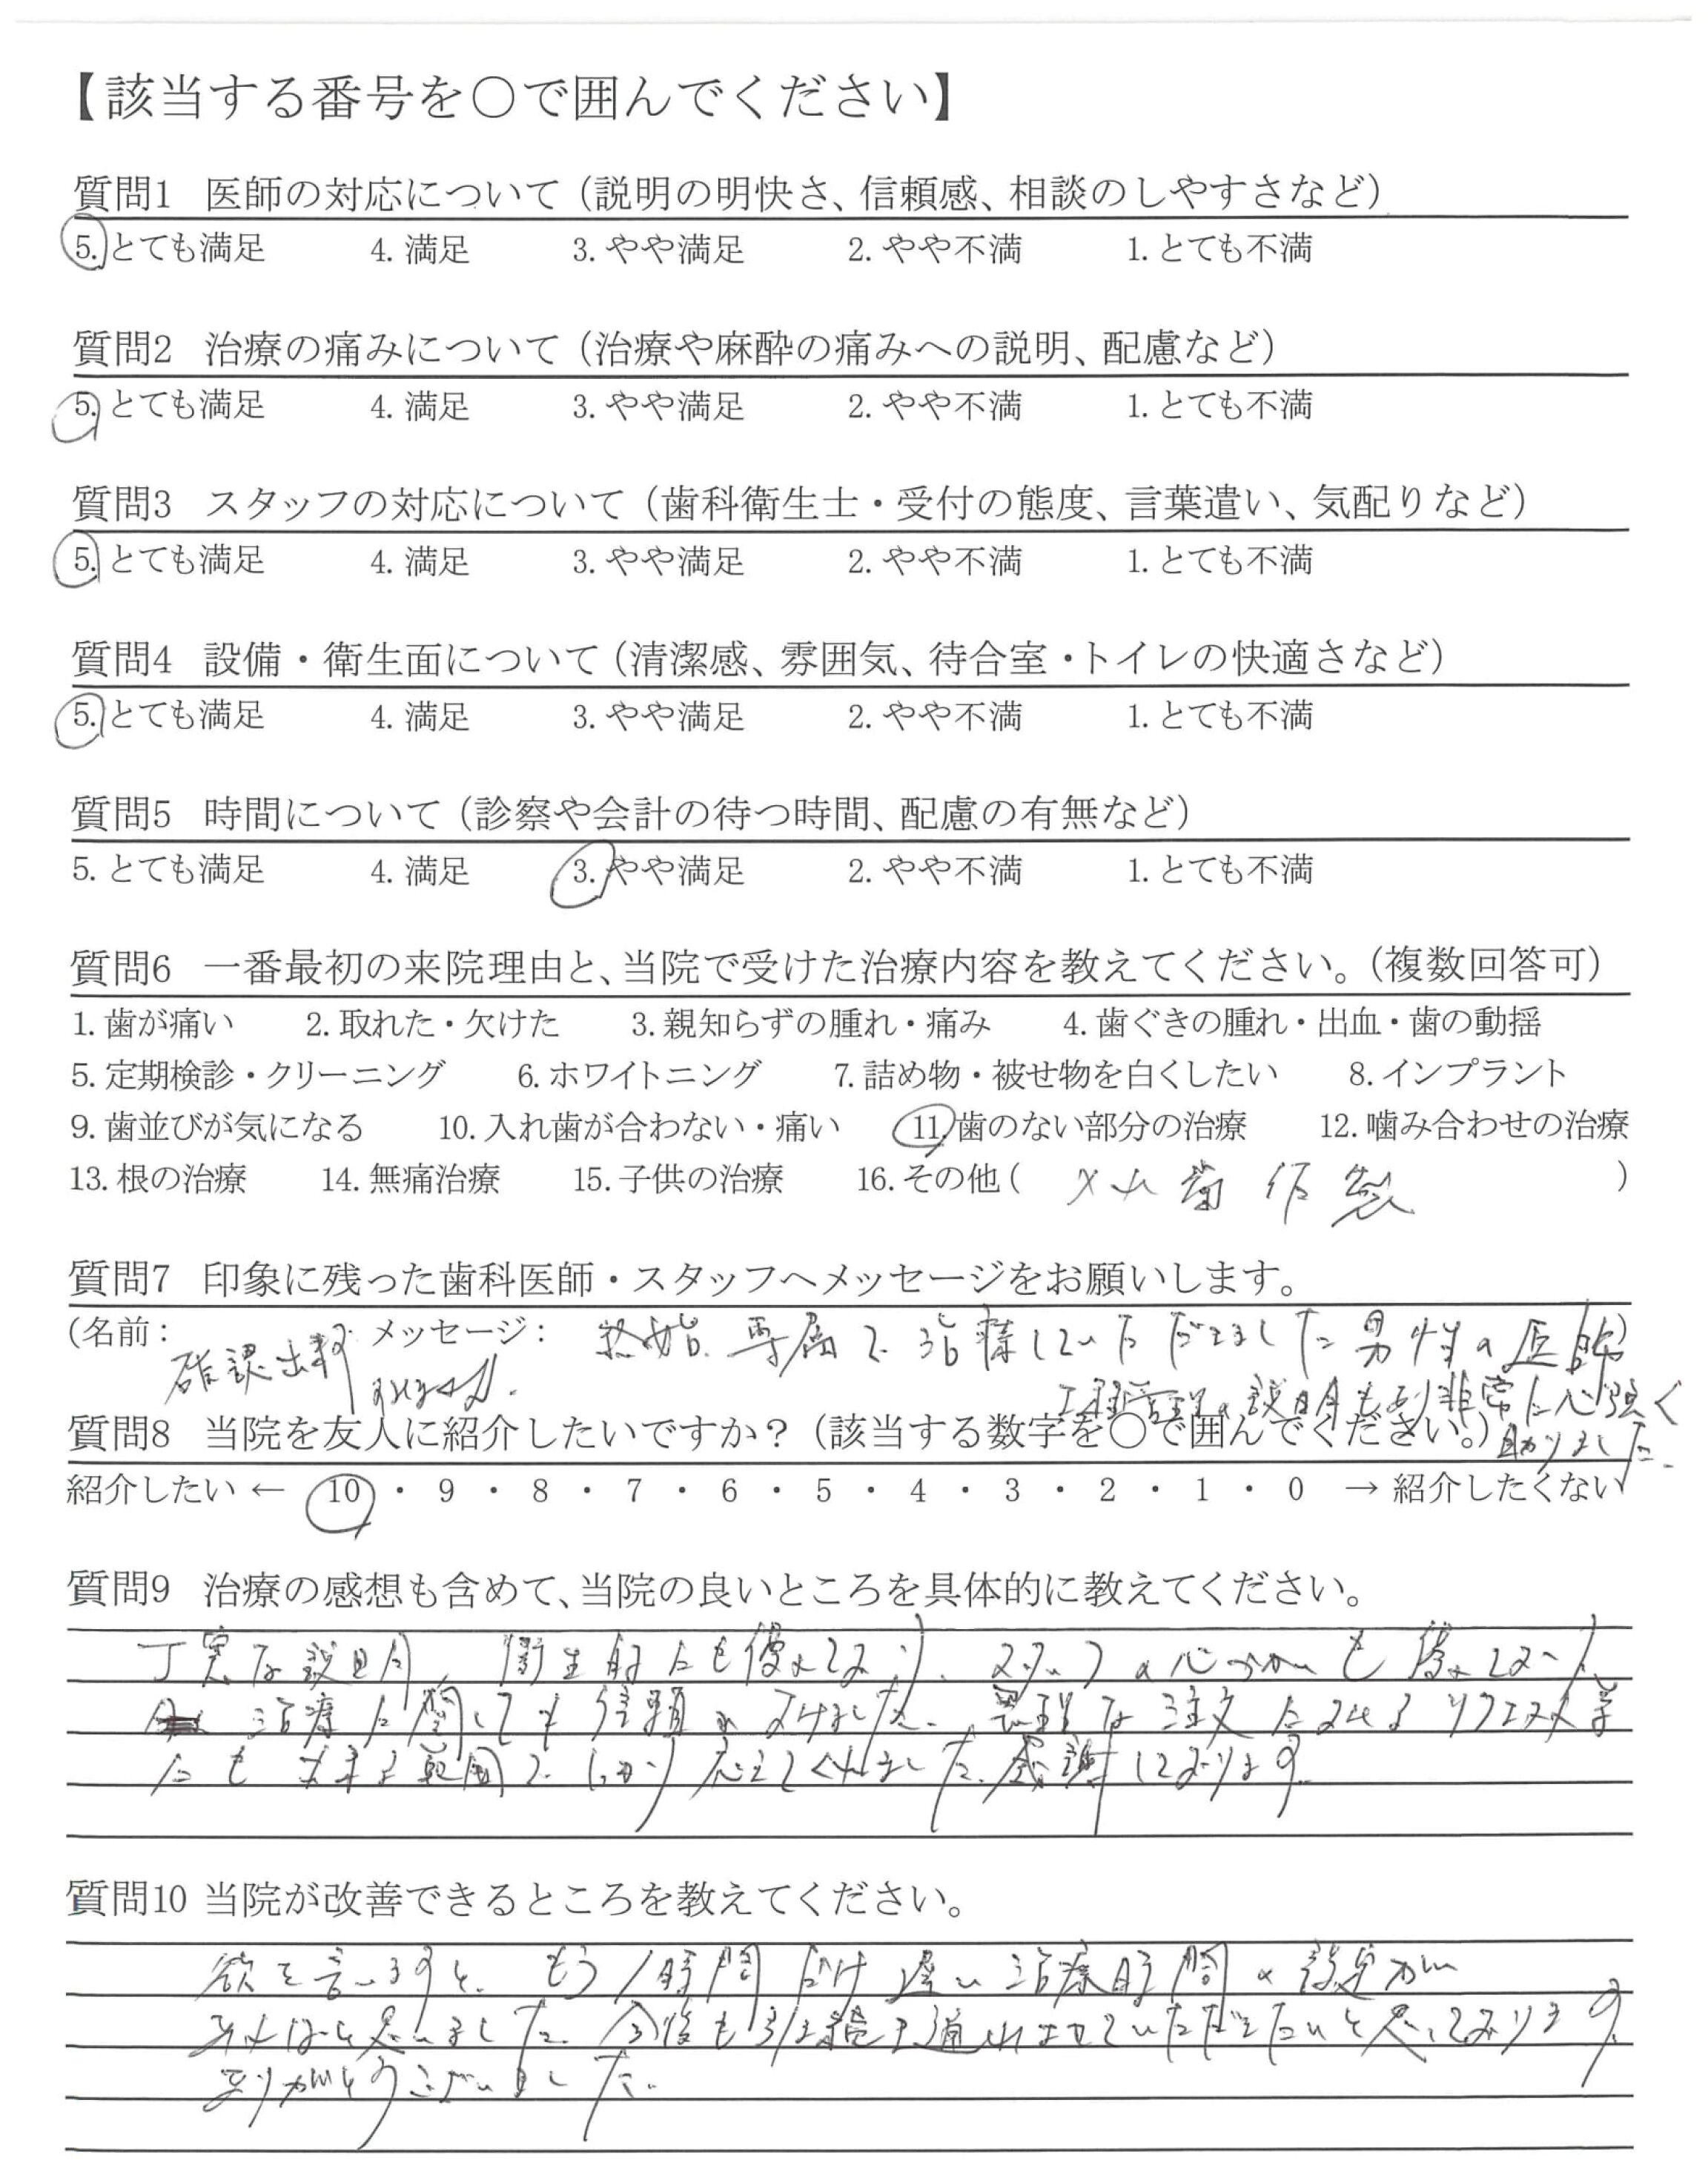 【該当する番号を○で囲んでください】
質問1 医師の対応について（説明の明快さ、信頼感、相談のしやすさなど）
5. とても満足 4. 満足 3. やや満足 2. やや不満 1. とても不満
質問2 治療の痛みについて（治療や麻酔の痛みへの説明、配慮など）
5. とても満足 4. 満足 3. やや満足 2. やや不満 1. とても不満
質問3 スタッフの対応について（歯科衛生士・受付の態度、言葉遣い、気配りなど）
5. とても満足 4. 満足 3. やや満足 2. やや不満 1. とても不満
質問4 設備・衛生面について（清潔感、雰囲気、待合室・トイレの快適さなど）
5. とても満足 4. 満足 3. やや満足 2. やや不満 1. とても不満
質問5 時間について（診察や会計の待つ時間、配慮の有無など）
5. とても満足 4. 満足 3. やや満足 2. やや不満 1. とても不満
質問6 一番最初の来院理由と、当院で受けた治療内容を教えてください。（複数回答可）
1. 歯が痛い 2. 取れた・欠けた 3. 親知らずの腫れ・痛み 4. 歯ぐきの腫れ・出血・歯の動揺
5. 定期検診・クリーニング 6. ホワイトニング 7. 詰め物・被せ物を白くしたい 8. インプラント
9. 歯並びが気になる 10. 入れ歯が合わない・痛い 11. 歯のない部分の治療 12. 噛み合わせの治療
13. 根の治療 14. 無痛治療 15. 子供の治療 16. その他( 入れ歯作製 )
質問7 印象に残った歯科医師・スタッフへメッセージをお願いします。
(名前： 確認出来ませんが メッセージ： 終始、専属で治療していただきました男性の医師)
説明もあり非常に心強く
助かりました。
質問8 当院を友人に紹介したいですか？（該当する数字を○で囲んでください。）
紹介したい ← 10 ・ 9 ・ 8 ・ 7 ・ 6 ・ 5 ・ 4 ・ 3 ・ 2 ・ 1 ・ 0 → 紹介したくない
質問9 治療の感想も含めて、当院の良いところを具体的に教えてください。
丁寧な説明、衛生的にも優れており、スタッフの心づかいも優れており
治療に関しても信頼おけました。無理な注文によるリクエスト等
にも出来る範囲でしっかり応えてくれました。感謝しております。
質問10 当院が改善できるところを教えてください。
欲を言いますと、もう1時間だけ遅い治療時間の設定がい
あればと思いました。今後も引き続き通わせていただきたいと思っております。
ありがとうございました。